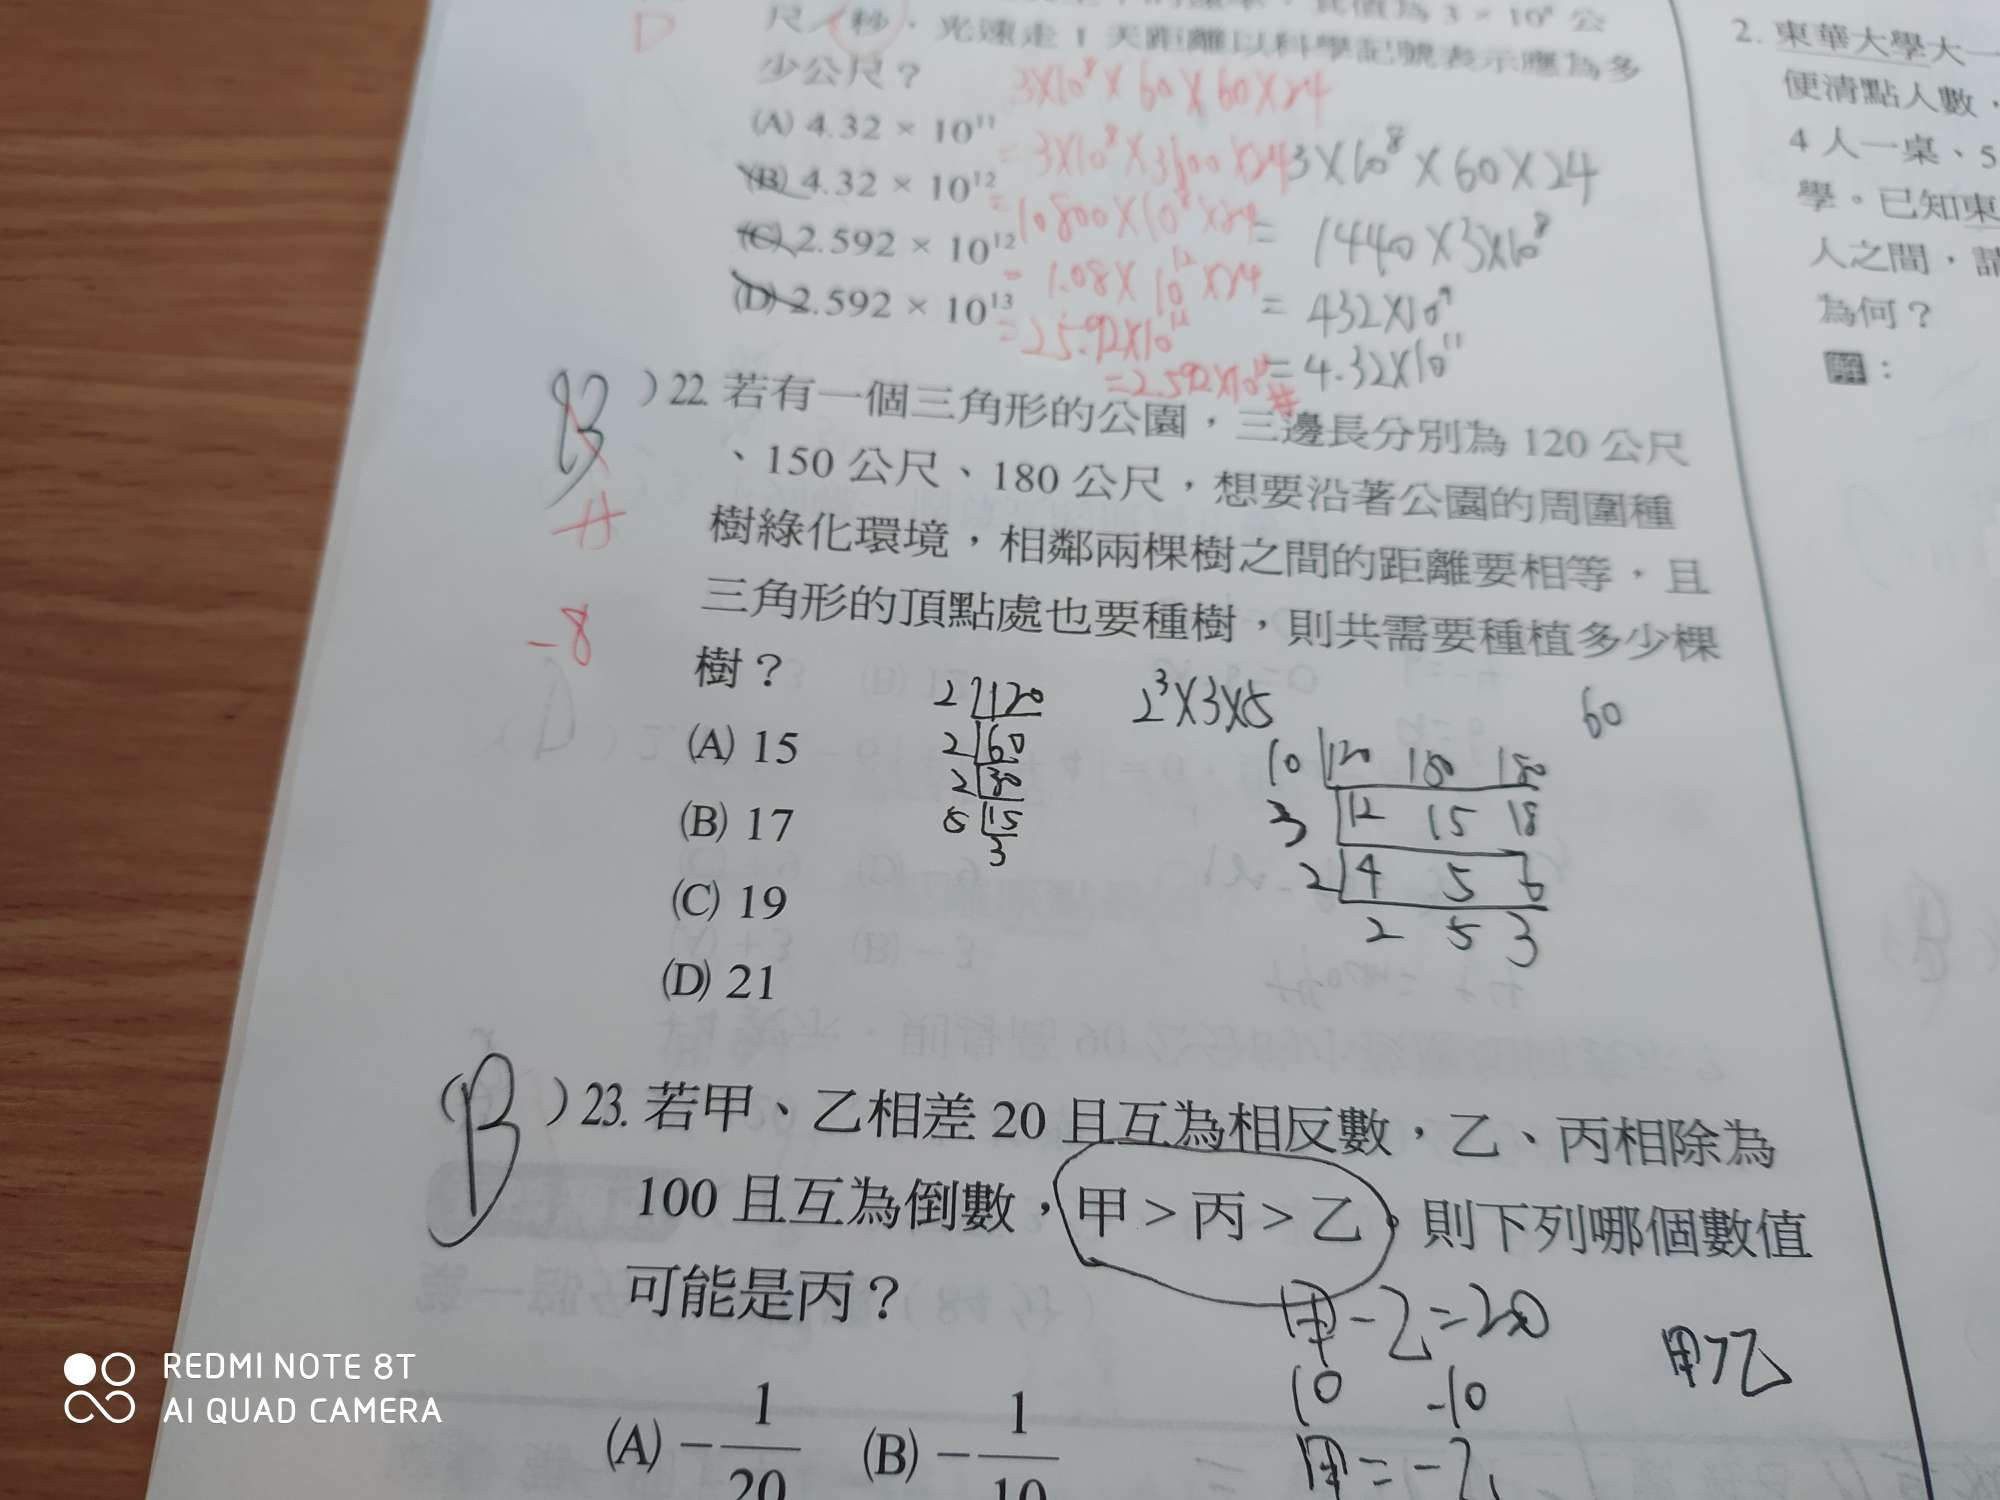 尺／秒，光速走 1 天距離以科學記號表示應為多
少公尺？
3×10⁸×60×60×24
(A) 4.32 × 10¹¹
=3×10⁸×3600×24
3×10⁸×60×24
(B) 4.32 × 10¹²
=10800×10⁸×24
= 1440×3×10⁸
(C) 2.592 × 10¹²
= 1.08×10¹²×24
= 432×10⁹
(D) 2.592 × 10¹³
=25.92×10¹²
=2.592×10¹³#
=4.32×10¹¹
D
)22. 若有一個三角形的公園，三邊長分別為 120 公尺
、150 公尺、180 公尺，想要沿著公園的周圍種
樹綠化環境，相鄰兩棵樹之間的距離要相等，且
三角形的頂點處也要種樹，則共需要種植多少棵
樹？
A
-8
(A) 15
(B) 17
(C) 19
(D) 21
2 120
2 60
2 30
5 15
3
2³×3×5
60
10 120 150 180
3 12 15 18
2 4 5 6
2 5 3
(B)23. 若甲、乙相差 20 且互為相反數，乙、丙相除為
100 且互為倒數，甲 > 丙 > 乙，則下列哪個數值
可能是丙？
甲-乙=20
甲>乙
10 -10
甲=-乙
(A) −1/20 (B) −1/10
2. 東華大學大一
便清點人數，
4 人一桌、5
學。已知東
人之間，請
為何？
解：
REDMI NOTE 8T
AI QUAD CAMERA